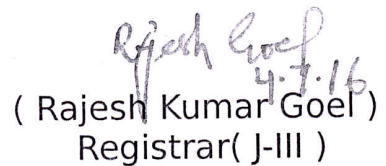 Rajesh Goel
4.7.16
( Rajesh Kumar Goel )
Registrar( J-III )